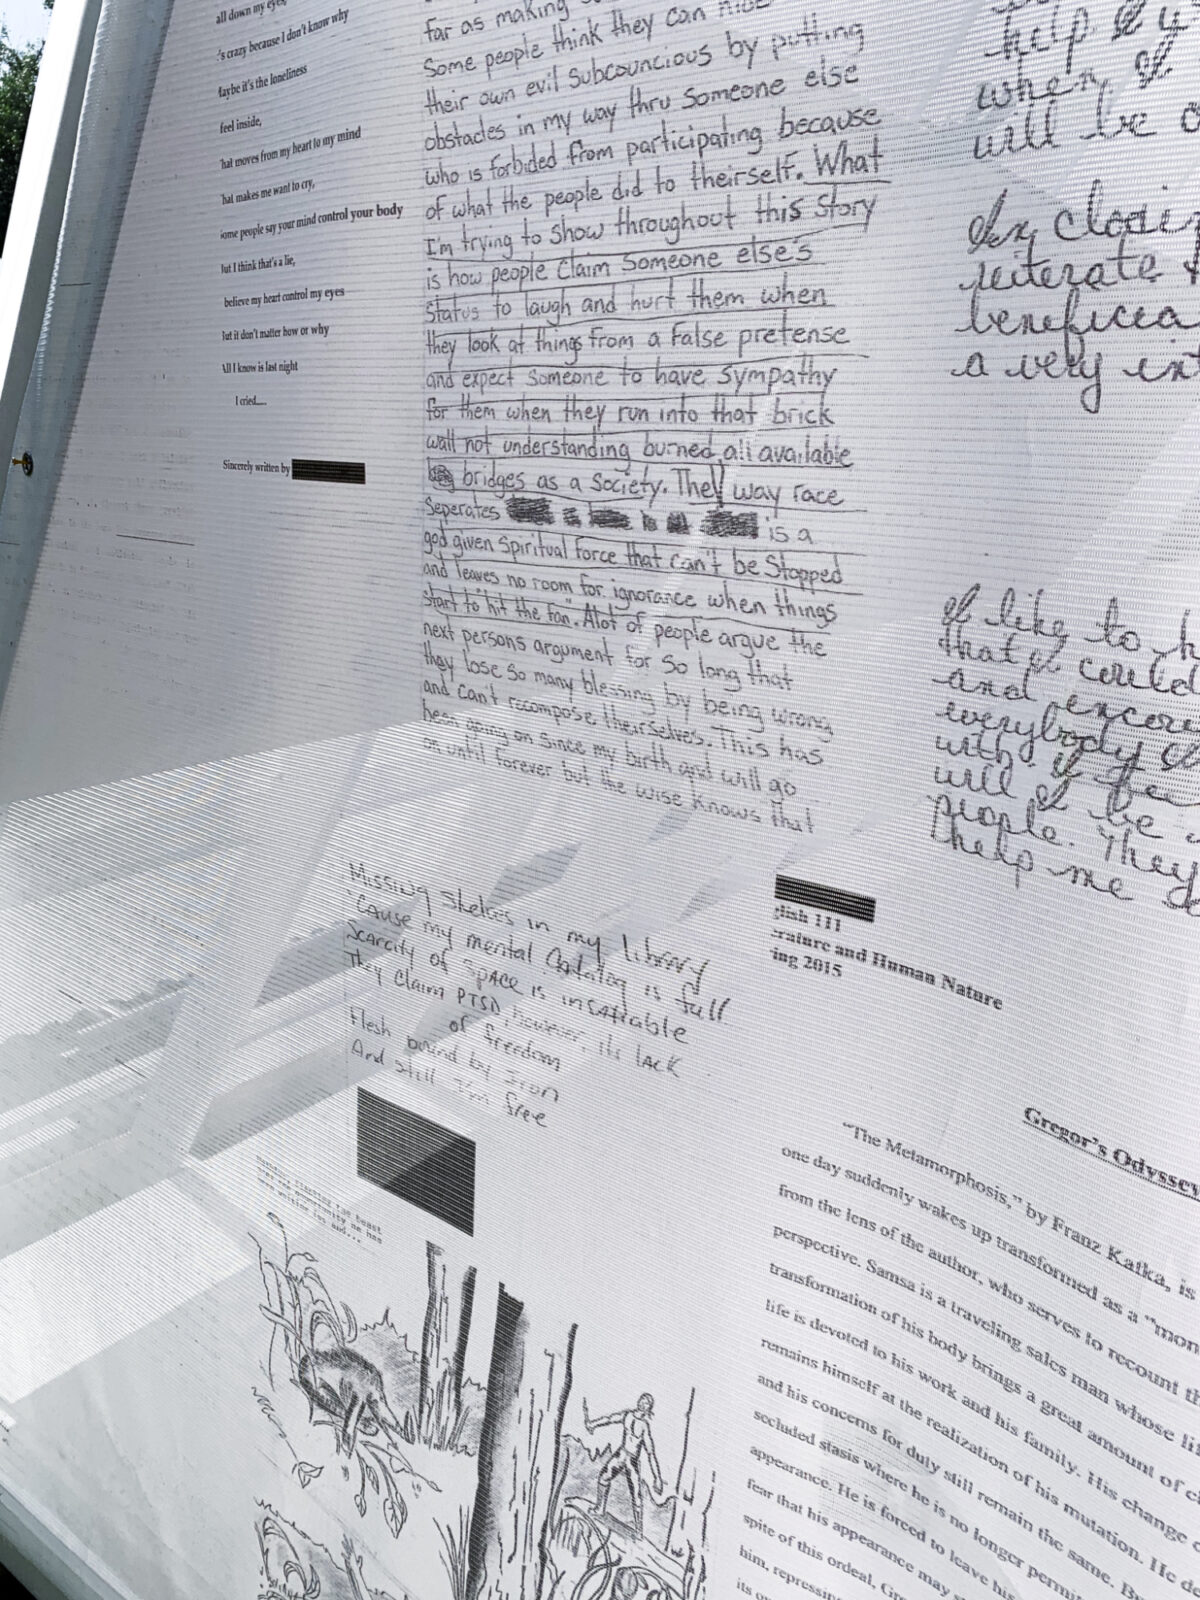 all down my eyes,
's crazy because I don't know why
Maybe it's the loneliness
feel inside,
that moves from my heart to my mind
That makes me want to cry,
some people say your mind control your body
but I think that's a lie,
believe my heart control my eyes
but it don't matter how or why
All I know is last night
I cried.....
Sincerely written by
far as making
Some people think they can hide
their own evil Subcouncious by putting
obstacles in my way thru Someone else
who is forbided from participating because
of what the people did to theirself. What
I'm trying to Show throughout this Story
is how people Claim Someone else's
Status to laugh and hurt them when
they look at things from a False pretense
and expect Someone to have Sympathy
for them when they run into that brick
wall not understanding burned all available
bridges as a Society. The way race
Seperates is a
god given Spiritual Force that can't be Stopped
and leaves no room for ignorance when things
start to "hit the fan". Alot of people argue the
next persons argument for So long that
they lose So many blessing by being wrong
and can't recompose theirselves. This has
been going on Since my birth and will go
on until forever but the wise knows that
help
when I
will be
In closi
reiterate
beneficia
a very int
I like to h
that I could
and encour
everybody
with
will I be
people. They
help me
Missing Shelves in my library
'Cause my mental Catalog is full
Scarcity of SpAce is insatiable
They Claim PTSD, however, its lAck
of freedom
Flesh bound by Iron
And still I'm free
glish 111
erature and Human Nature
ing 2015
Gregor's Odyssey
"The Metamorphosis," by Franz Kafka, is
one day suddenly wakes up transformed as a "mon
from the lens of the author, who serves to recount th
perspective. Samsa is a traveling sales man whose lif
transformation of his body brings a great amount of c
life is devoted to his work and his family. His change
remains himself at the realization of his mutation. He de
and his concerns for duty still remain the same. B
secluded stasis where he is no longer permi
appearance. He is forced to leave his
fear that his appearance may
spite of this ordeal, Gre
him, repressin
its o